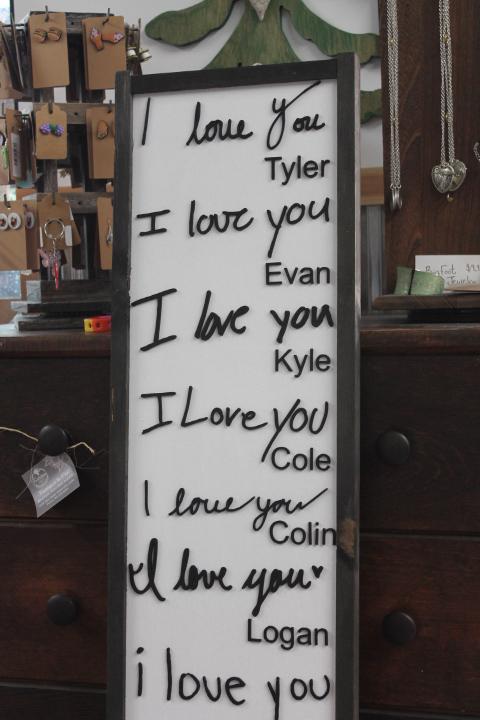 I love you
Tyler
I love you
Evan
I love you
Kyle
I Love you
Cole
I love you
Colin
I love you♥
Logan
i love you
Bigfoot
Jewelry